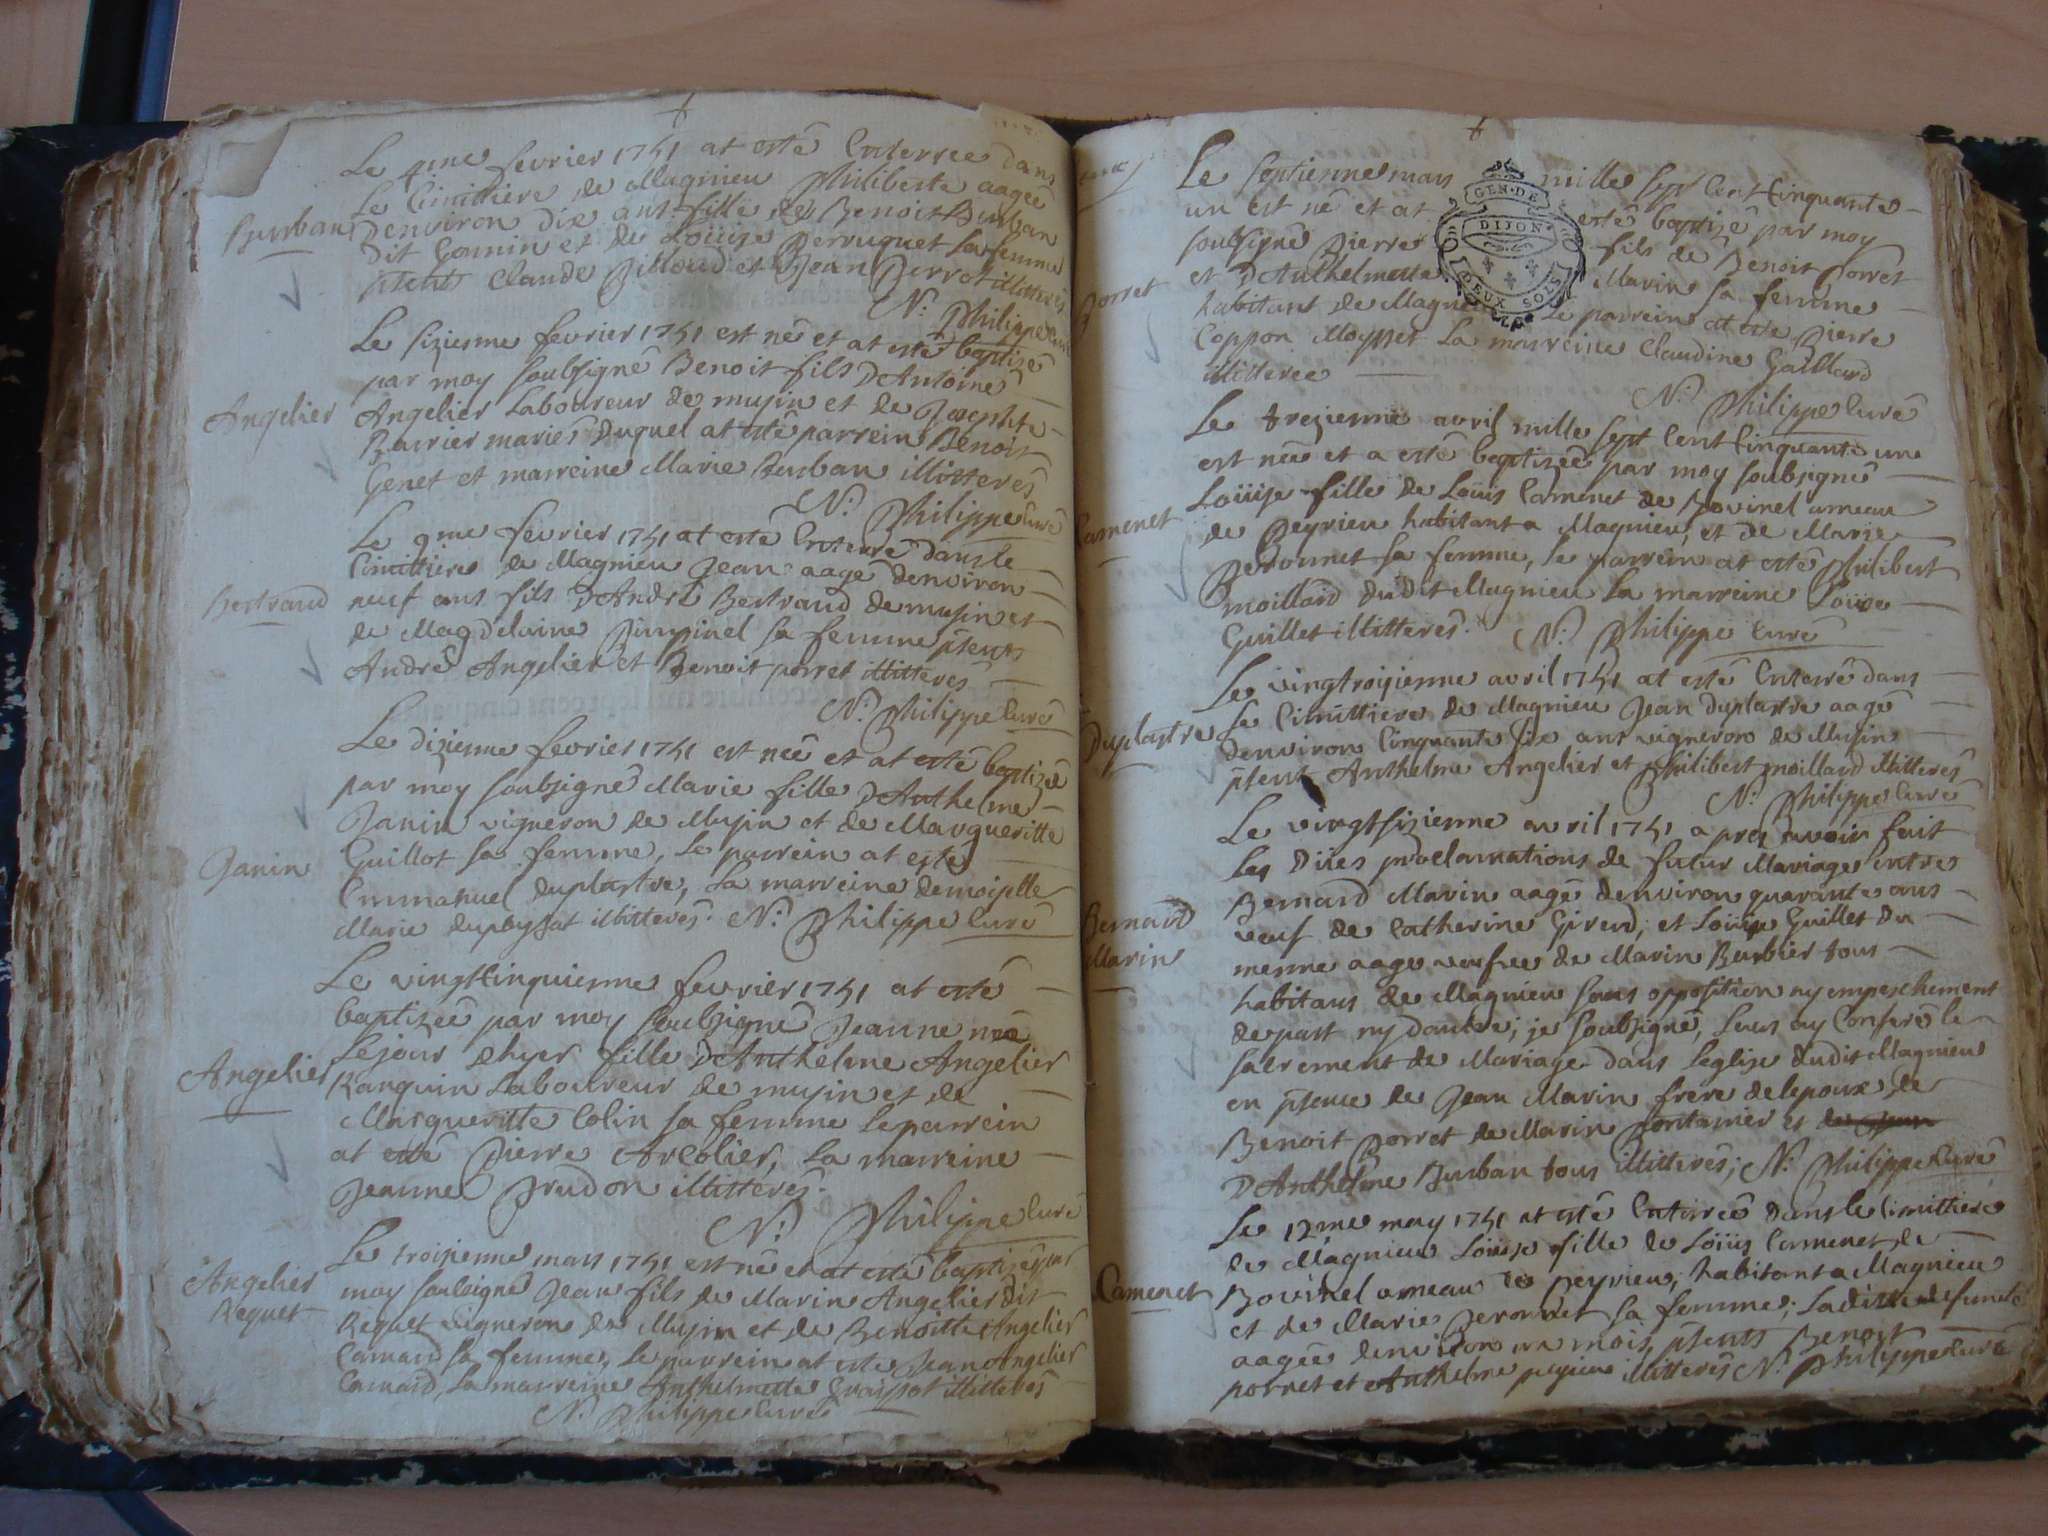 Le 4me fevrier 1751 at esté Enterree dans
Le Cimittiere de Magnieu Philiberte aagée
Burban
d'environ dix ans fille de Benoit Burban
dit Comin et de Loüise Perruquet sa femme
pñents Claude Billoud et Jean Perrot illitterés
N. Philippe curé
Le sizienne fevrier 1751 est né et at esté baptizé
par moy soubsigné Benoit fils D'Antoine
Angelier
Angelier Laboureur de musin et de
Barrier mariés duquel at esté parrein Benoit
Genet et marreine Marie Burban illitterés
N. Philippe curé
Le 9me fevrier 1751 at esté Enterré dans le
Cimittiere de Magnieu Jean aagé denviron
Bertrand
neuf ans fils D'André Bertrand de musin et
de Magdelaine sa femme pñents
André Angelier et Benoit porret illitterés
N. Philippe curé
Le dizienne fevrier 1751 est née et at esté baptizée
par moy soubsigné Marie fille D'Anthelme
Janin vigneron de Musin et de Margueritte
Janin
Guillot sa femme, Le parrein at esté
Emmanuel duplastre, La marreine demoiselle
Marie illitterés. N. Philippe curé
Le vingtcinquienne fevrier 1751 at esté
baptizée par moy soubsigné Jeanne née
Angelier
Le jour d'hyer fille D'Anthelme Angelier
Ranguin Laboureur de musin et de
Margueritte Colin sa femme Le parrein
at esté Pierre Arcolier, La marreine
Jeanne Prudon illitterés.
N. Philippe curé
Le troisienne mars 1751 est né et at esté baptizé par
Angelier
Requet
moy soubsigné Jean fils de Marin Angelier dit
Requet vigneron de Musin et de Benoitte Angelier
Camard sa femme, Le parrein at esté Jean Angelier
Camard, La marreine Anthelmette illitterés
N. Philippe curé
Le septienne mars mille sept Cent Cinquante
un est né et at esté baptizé par moy
soubsigné Pierre fils de Benoit Porret
GEN. DE
DIJON
DEUX SOLS
Porret
et D'Anthelmette Marin sa femme
habitant de Magnieu Le parrein at esté Pierre
Coppon Moynet La marreine Claudine Gaillard
illitteree
N. Philippe curé
Le trezienne avril mille sept Cent Cinquante une
est née et a esté baptizée par moy soubsigné
Loüise fille de Loüis Camenet de Bovinel ameau
Camenet
de Peyrieu habitant a Magnieu, et de Marie
Peronnet sa femme, Le parrein at esté Philibert
moillard du Dit Magnieu La marreine Loüise
Guillet illitterés. N. Philippe curé
Le vingtroisienne avril 1751 at esté Enterré dans
Duplastre
Le Cimittiere de Magnieu Jean duplastre aagé
d'environ Cinquante six ans vigneron de Musin
pñents Anthelme Angelier et Philibert moillard illitterés
N. Philippe curé
Le vingtsizienne avril 1751 apres avoir fait
Les Dües proclamations de futur Mariage entre
Bernard
Marin
Bernard Marin aagé d'environ quarante ans
veuf de Catherine Girend, et Loüise Guillet du
menne aage veufve de Marin Barbier tous
habitans de Magnieu sans opposition ny empeschement
de part ny dautre; je soubsigné, Leurs ay Conferé le
sacrement de Mariage dans L'eglise dudit Magnieu
en pñence de Jean Marin frere de lepoux, de
Benoit Porret de Marin Pontanier et
D'Anthelme Burban tous illitterés; N. Philippe curé
Le 12me may 1751 at esté Enterrée Dans le Cimittiere
de Magnieu Loüise fille de Loüis Camenet de
Camenet
Bovinel ameau de Peyrieu, habitant a Magnieu
et de Marie Peronnet sa femme; Laditte defuncte
aagée d'environ un mois, pñents Benoit
porret et Anthelme illitterés N. Philippe curé